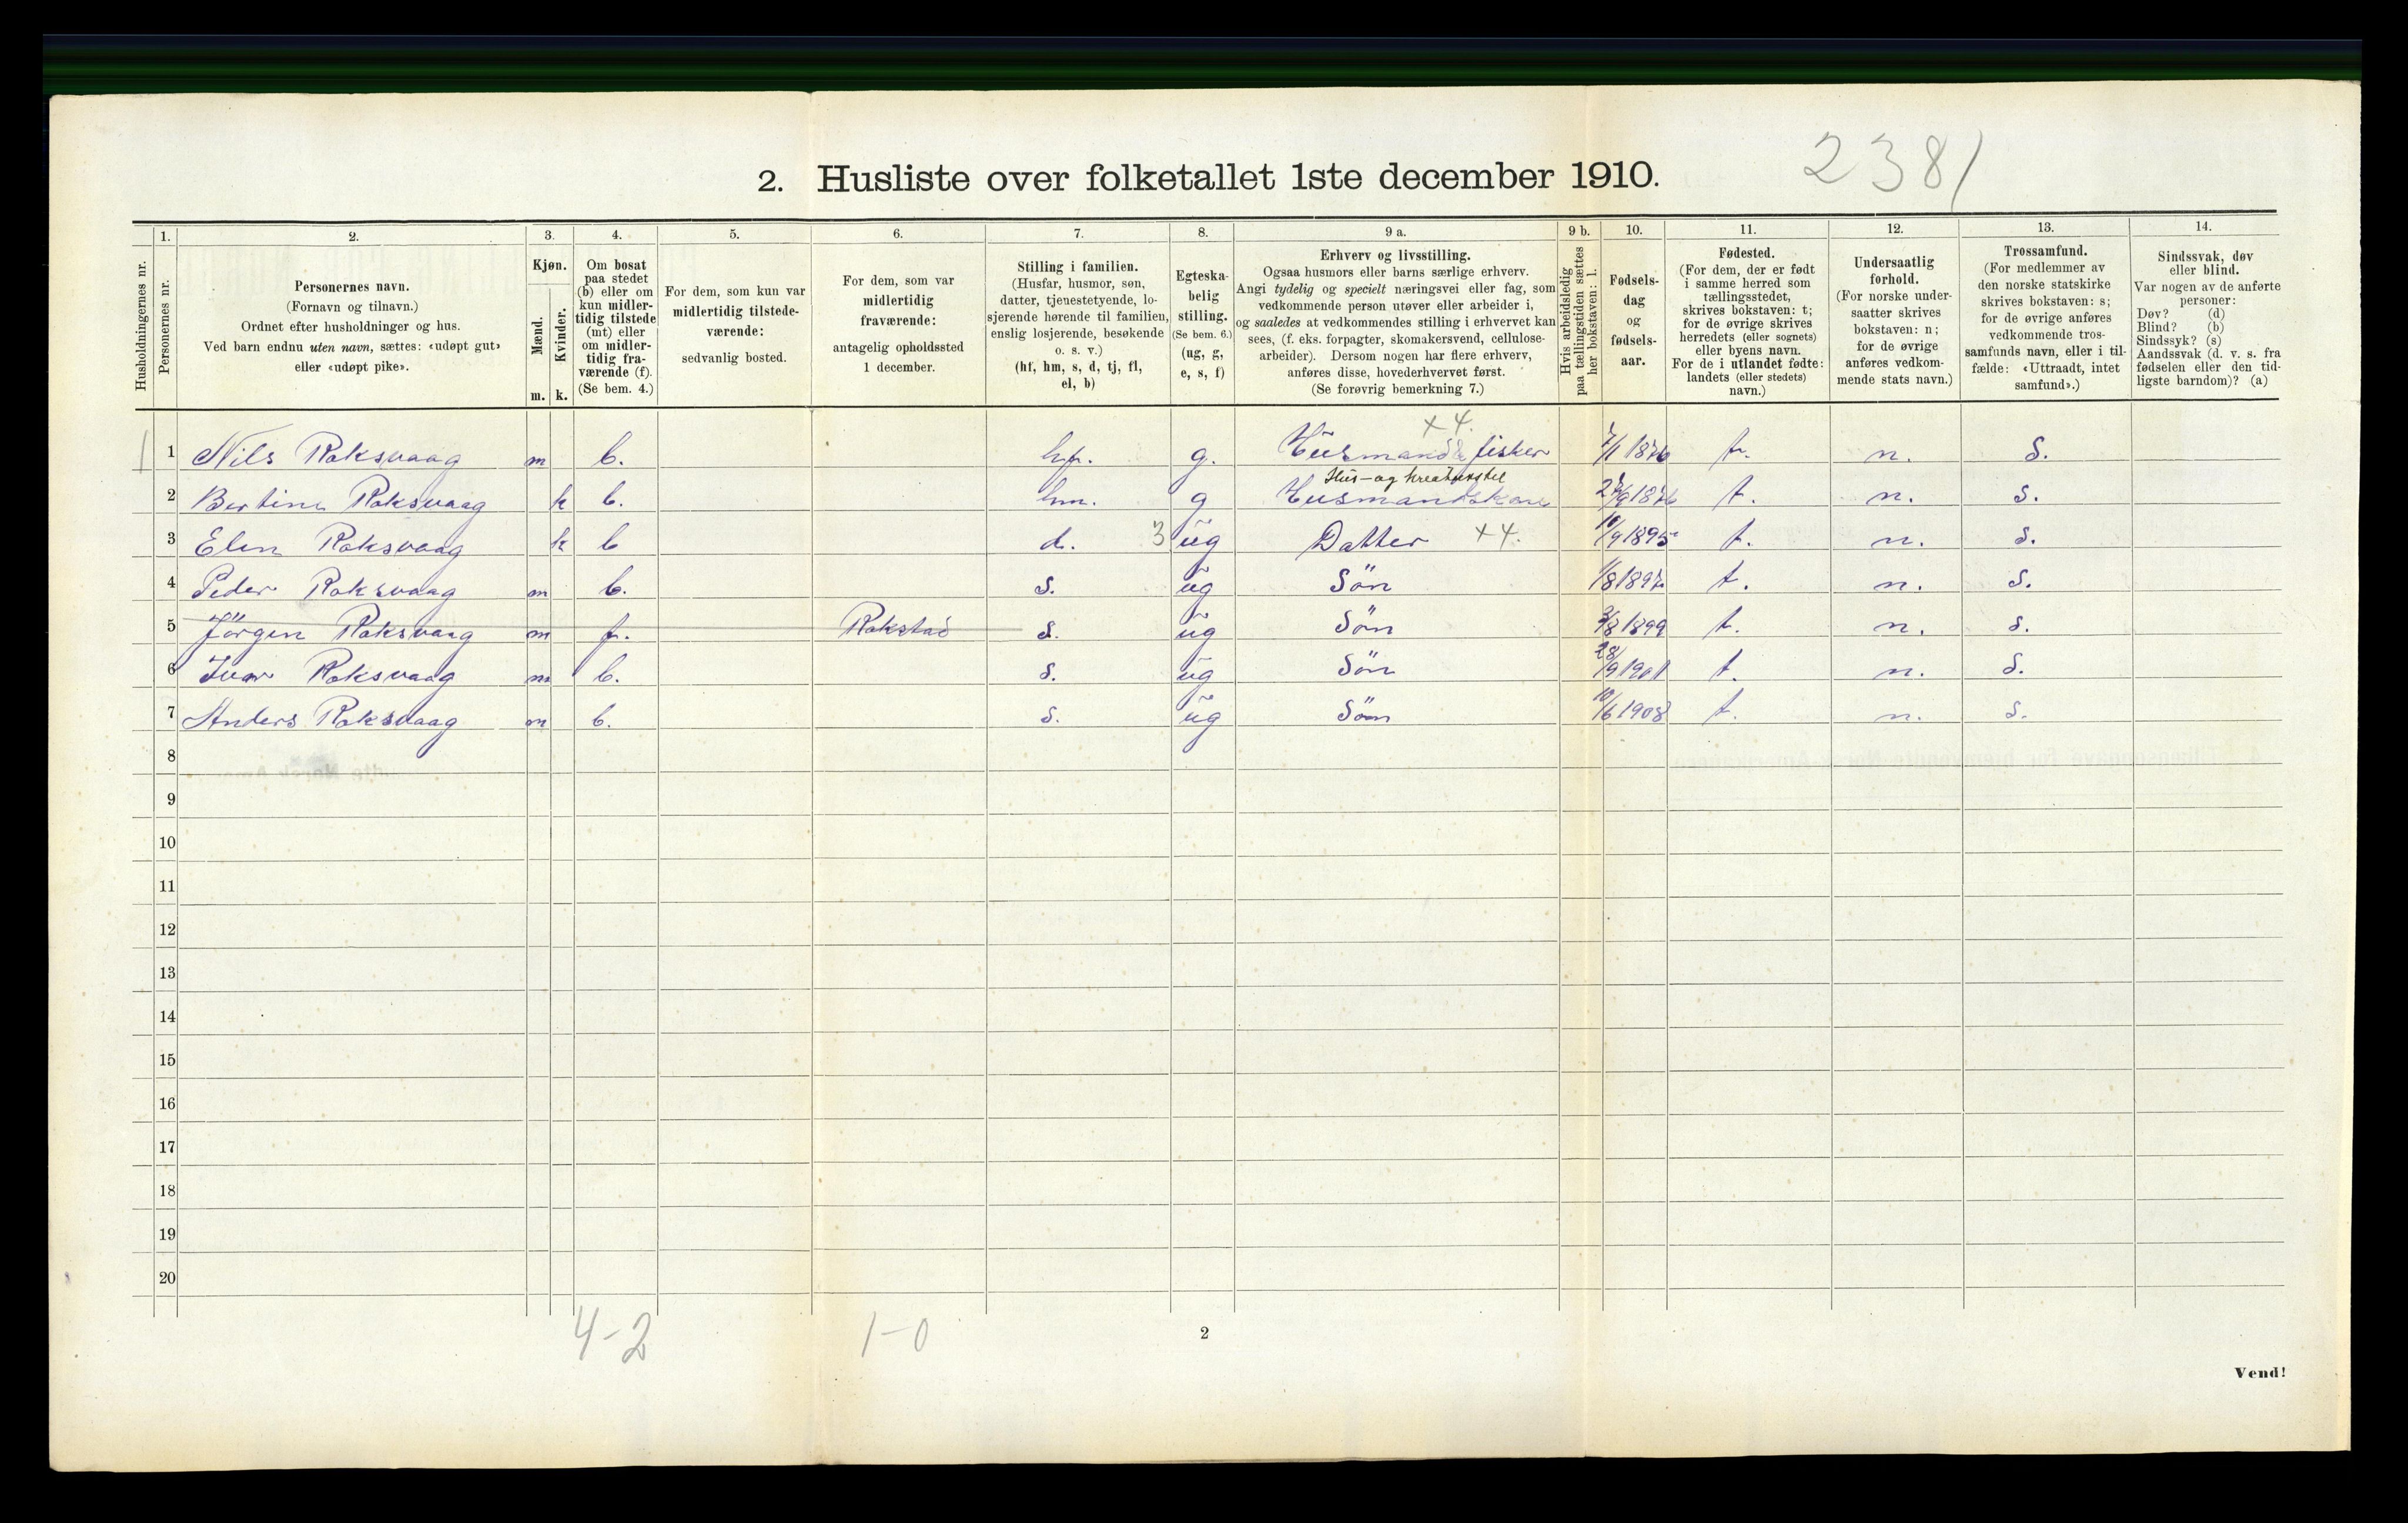 2. Husliste over folketallet 1ste december 1910.
2381
Husholdningernes nr.
1.
Personernes nr.
2.
Personernes navn.
(Fornavn og tilnavn.)
Ordnet efter husholdninger og hus.
Ved barn endnu uten navn, sættes: «udøpt gut»
eller «udøpt pike».
3.
Kjøn.
Mænd.
Kvinder.
m. k.
4.
Om bosat
paa stedet
(b) eller om
kun midler-
tidig tilstede
(mt) eller
om midler-
tidig fra-
værende (f).
(Se bem. 4.)
5.
For dem, som kun var
midlertidig tilstede-
værende:
sedvanlig bosted.
6.
For dem, som var
midlertidig
fraværende:
antagelig opholdssted
1 december.
7.
Stilling i familien.
(Husfar, husmor, søn,
datter, tjenestetyende, lo-
sjerende hørende til familien,
enslig losjerende, besøkende
o. s. v.)
(hf, hm, s, d, tj, fl,
el, b)
8.
Egteska-
belig
stilling.
(Se bem. 6.)
(ug, g,
e, s, f)
9 a.
Erhverv og livsstilling.
Ogsaa husmors eller barns særlige erhverv.
Angi tydelig og specielt næringsvei eller fag, som
vedkommende person utøver eller arbeider i,
og saaledes at vedkommendes stilling i erhvervet kan
sees, (f. eks. forpagter, skomakersvend, cellulose-
arbeider). Dersom nogen har flere erhverv,
anføres disse, hovederhvervet først.
(Se forøvrig bemerkning 7.)
9 b.
Hvis arbeidsledig
paa tællingstiden sættes
her bokstaven: l.
10.
Fødsels-
dag
og
fødsels-
aar.
11.
Fødested.
(For dem, der er født
i samme herred som
tællingsstedet,
skrives bokstaven: t;
for de øvrige skrives
herredets (eller sognets)
eller byens navn.
For de i utlandet fødte:
landets (eller stedets)
navn.)
12.
Undersaatlig
forhold.
(For norske under-
saatter skrives
bokstaven: n;
for de øvrige
anføres vedkom-
mende stats navn.)
13.
Trossamfund.
(For medlemmer av
den norske statskirke
skrives bokstaven: s;
for de øvrige anføres
vedkommende tros-
samfunds navn, eller i til-
fælde: «Uttraadt, intet
samfund».)
14.
Sindssvak, døv
eller blind.
Var nogen av de anførte
personer:
Døv? (d)
Blind? (b)
Sindssyk? (s)
Aandssvak (d. v. s. fra
fødselen eller den tid-
ligste barndom)? (a)
x 4.
1 1 Nils Roksvaag m b. hf. g. Husmand & fisker 7/1 1876 t. n. s.
Hus- og kreaturstel
2 Bertine Roksvaag k b. hm. g Husmandskone 27/9 1876 t. n. s.
3 Elen Roksvaag k b d. 3 ug Datter x 4. 10/9 1895 t. n. s.
4 Peder Roksvaag m b. s. ug Sön 1/8 1897 t. n. s.
5 Jörgen Roksvaag m f. Rokstad s. ug Sön 3/8 1899 t. n. s.
6 Ivar Roksvaag m b. s. ug Sön 28/9 1901 t. n. s.
7 Anders Roksvaag m b. s. ug Sön 10/6 1908 t. n. s.
8
9
10
11
12
13
14
15
16
17
18
19
20
4-2 1-0
2
Vend!